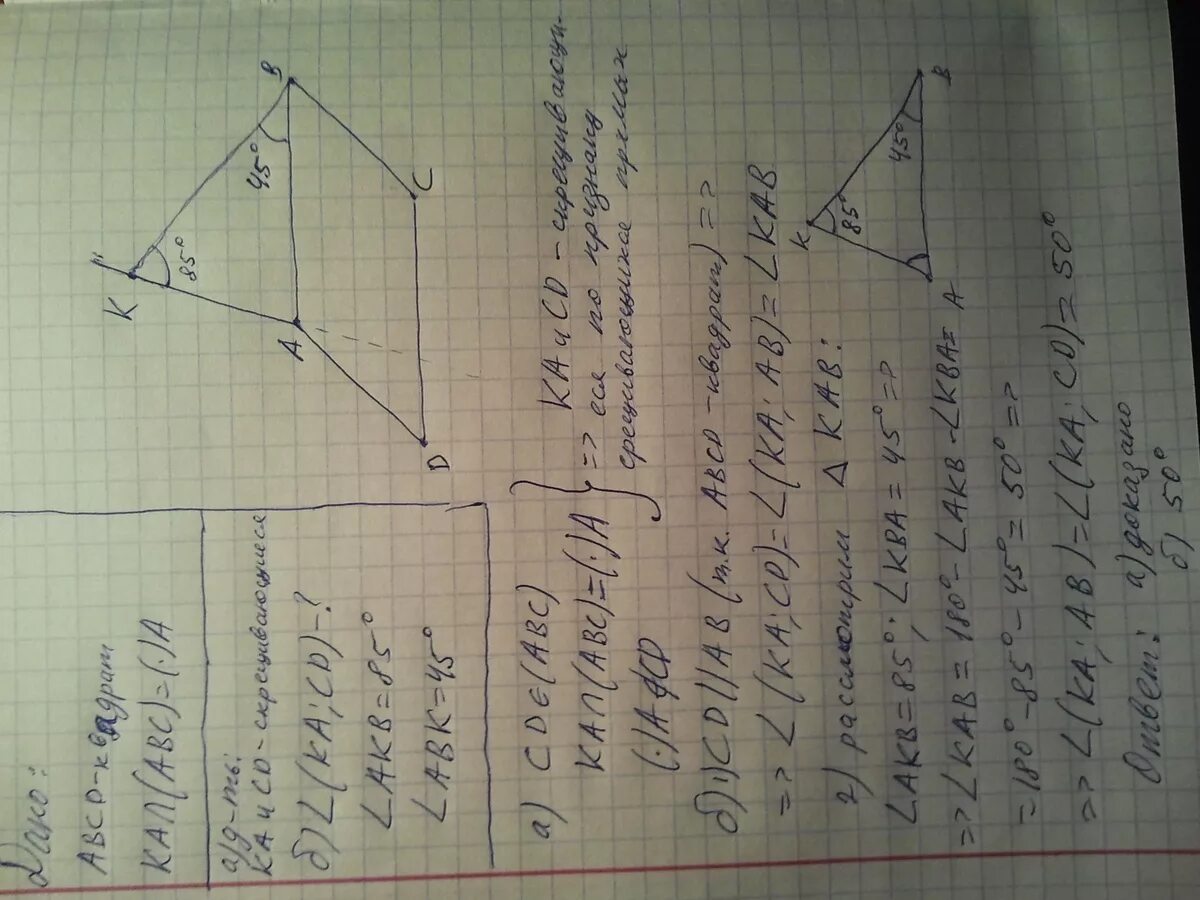 Дано:
ABCD-квадрат
KA∩(ABC)=(·)A
а) д-ть:
KA и CD-скрещивающиеся
б) ∠(KA;CD)-?
∠AKB=85°
∠ABK=45°
K
85°
45°
B
A
C
D
а) CD∈(ABC)
KA∩(ABC)=(·)A
(·)A∉CD
KA и CD-скрещивающи-
=> еся по признаку
скрещивающихся прямых
б) 1) CD||AB (т.к. ABCD-квадрат) =>
=> ∠(KA;CD)=∠(KA;AB)=∠KAB
2) рассмотрим △KAB:
∠AKB=85°; ∠KBA=45° =>
=> ∠KAB=180°-∠AKB-∠KBA=
=180°-85°-45°=50° =>
=> ∠(KA;AB)=∠(KA;CD)=50°
K
85°
45°
B
A
Ответ: а) доказано
б) 50°